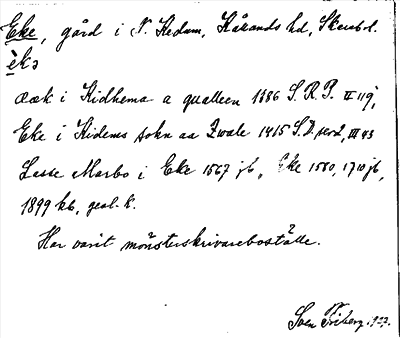 Eke, gård i N. Kedum, Kåkands hd, Skarab.l.
èkɔ
aæk i Kidhema a qualleen 1386 S.R.P. II 119,
Eke i Kidems sokn aa Zwale 1415 S.D. ser 2, III 43
Lasse Marbo i Eke 1567 jb, Eke 1580, 1710 jb,
1899 kb, geol. k.
Har varit mönsterskrivareboställe.
Sven Friberg 1927.